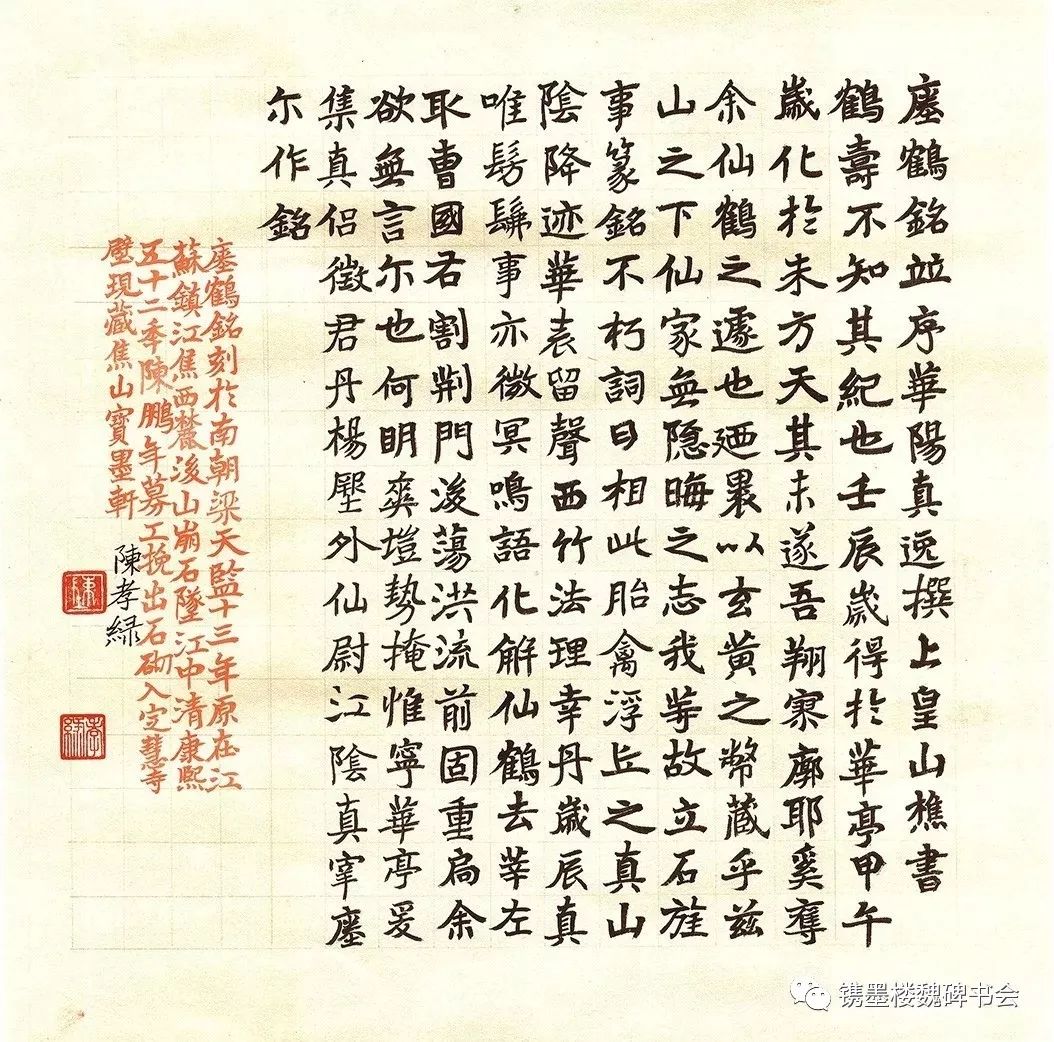 瘞鶴銘並序華陽真逸撰上皇山樵書
鶴壽不知其紀也壬辰歲得於華亭甲午
歲化於朱方天其未遂吾翔寥廓耶奚奪
余仙鶴之遽也廼裹以玄黄之幣蔵乎兹
山之下仙家無隱晦之志我等故立石旌
事篆銘不朽詞曰相此胎禽浮丘之真山
陰降迹華表留聲西竹法理幸丹歲辰真
唯髣髴事亦微冥鳴語化解仙鶴去莘左
取曹國右割荆門後蕩洪流前固重扃余
欲無言尓也何明爽塏勢掩惟寧華亭爰
集真侣徵君丹楊壂外仙尉江陰真宰瘞
尓作銘
瘞鶴銘刻於南朝梁天監十三年原在江
蘇鎮江焦西麓後山崩石墬江中清康熙
五十二季陳鵬年募工挽出石砌入定慧寺
壁現藏焦山寳墨軒
陳孝緑
镌墨楼魏碑书会